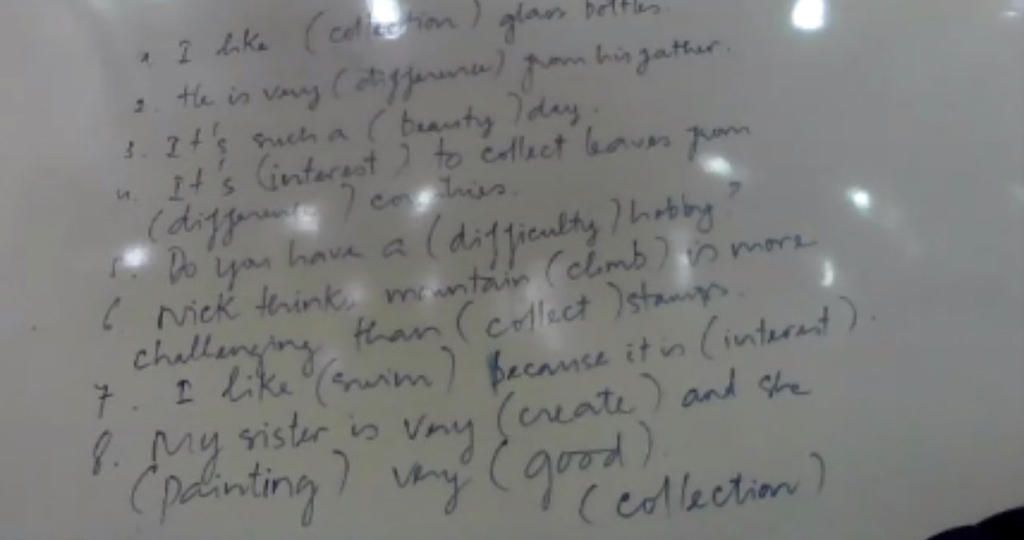 1. I like (collection) glass bottles.
2. He is very (difference) from his father.
3. It's such a (beauty) day.
4. It's (interest) to collect leaves from
(difference) countries.
5. Do you have a (difficulty) hobby?
6. Nick thinks mountain (climb) is more
challenging than (collect) stamps.
7. I like (swim) because it is (interest).
8. My sister is very (create) and she
(painting) very (good).
(collection)